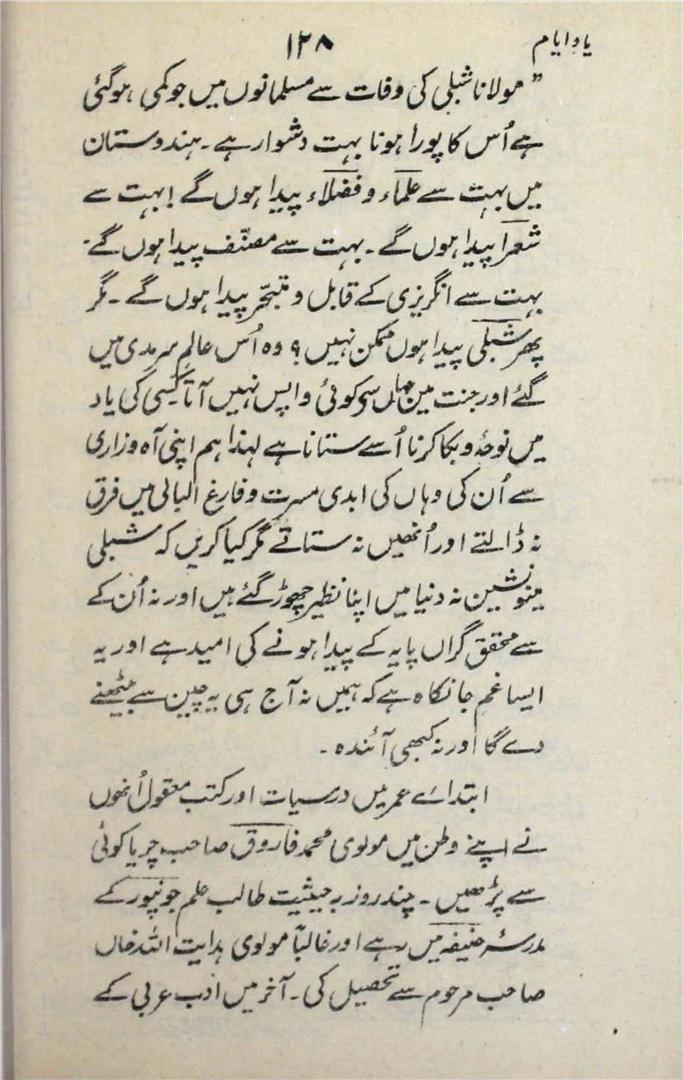 یادِ ایام
۱۲۸
”مولانا شبلی کی وفات سے مسلمانوں میں جو کمی ہو گئی
ہے اُس کا پورا ہونا بہت دشوار ہے۔ ہندوستان
میں بہت سے علماء و فضلاء پیدا ہوں گے! بہت سے
شعرا پیدا ہوں گے۔ بہت سے مصنّف پیدا ہوں گے۔
بہت سے انگریزی کے قابل و متبحّر پیدا ہوں گے۔ مگر
پھر شبلی پیدا ہوں ممکن نہیں؟ وہ اُس عالمِ سرمدی میں
گئے اور جنت میں جہاں سے کوئی واپس نہیں آتا کسی کی یاد
میں نوحۂ و بکا کرنا اُسے ستانا ہے لہذا ہم اپنی آہ و زاری
سے اُن کی وہاں کی ابدی مسرت و فارغ البالی میں فرق
نہ ڈالتے اور اُنھیں نہ ستاتے مگر کیا کریں کہ شبلی
مینو نشین نہ دنیا میں اپنا نظیر چھوڑ گئے ہیں اور نہ اُن کے
سے محقق گراں پایہ کے پیدا ہونے کی امید ہے اور یہ
ایسا غم جانکاہ ہے کہ ہمیں نہ آج ہی یہ چین سے بیٹھنے
دے گا اور نہ کبھی آئندہ۔
ابتداے عمر میں درسیات اور کتب معقول اُنھوں
نے اپنے وطن میں مولوی محمد فاروق صاحب چریا کوٹی
سے پڑھیں۔ چند روز بہ حیثیت طالب علم جونپور کے
مدرسۂ حنیفہ میں رہے اور غالباً مولوی ہدایت اللہ خاں
صاحب مرحوم سے تحصیل کی۔ آخر میں ادب عربی کے